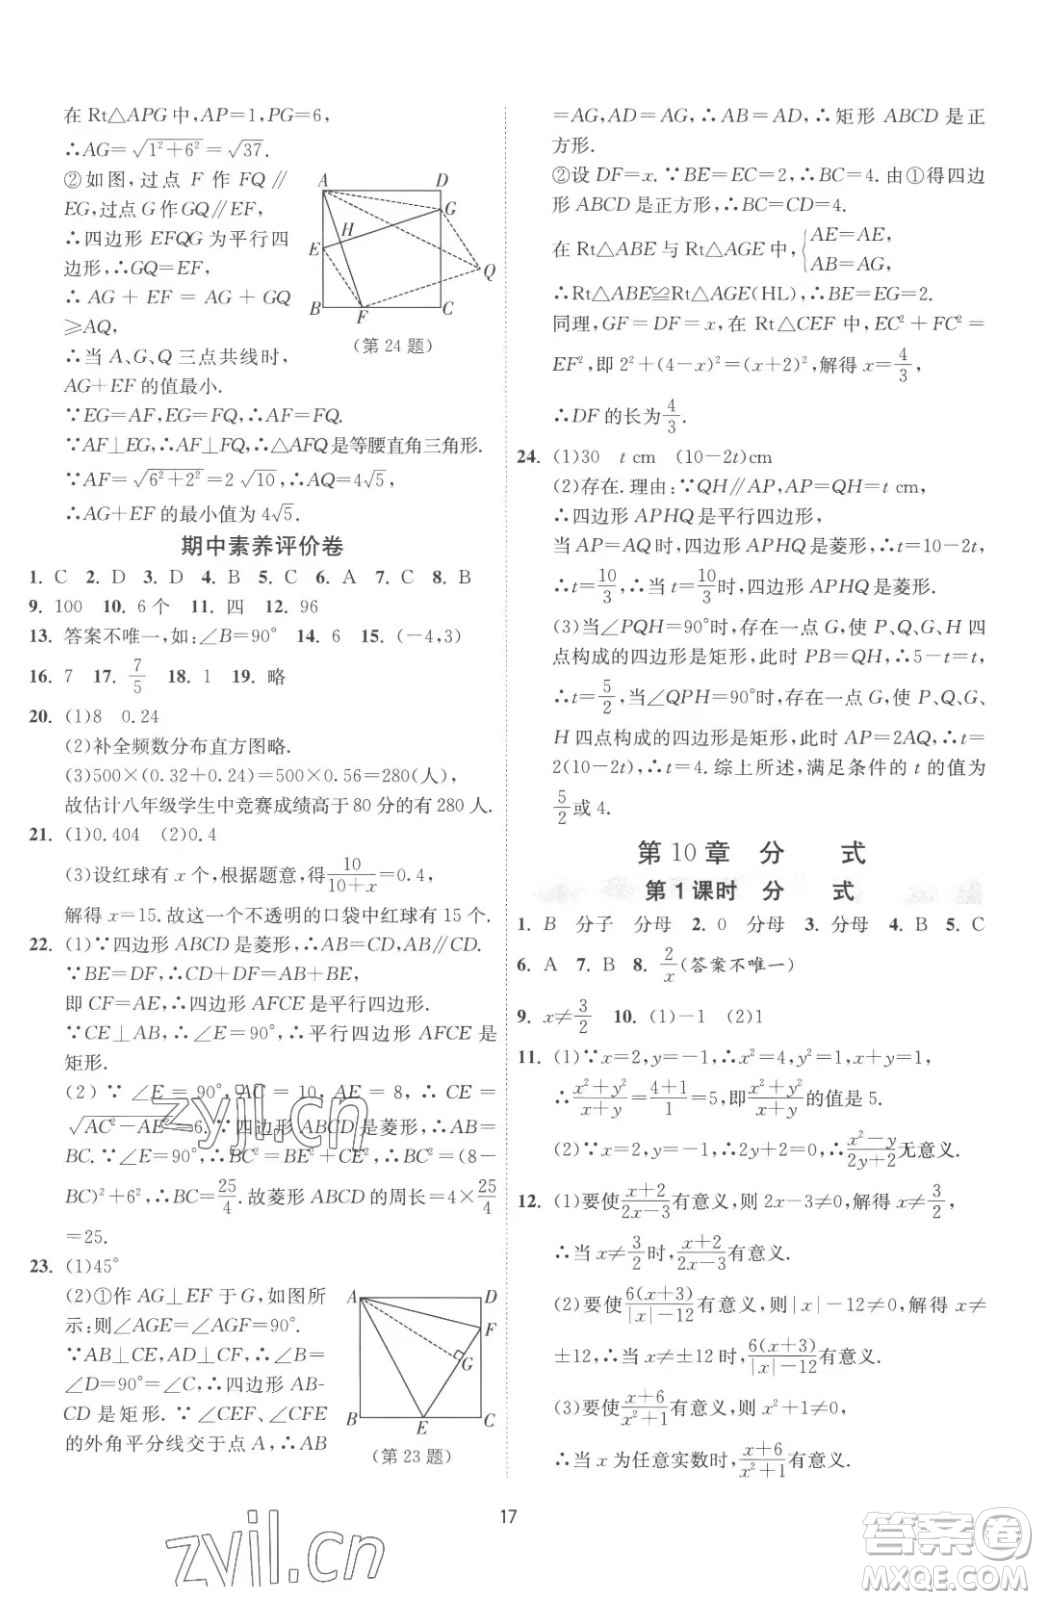 在 Rt△APG 中,AP=1,PG=6,
∴AG=√(1²+6²)=√37.
②如图,过点 F 作 FQ∥
EG,过点 G 作 GQ∥EF,
∴四边形 EFQG 为平行四
边形,∴GQ=EF,
∴ AG + EF = AG + GQ
⩾AQ,
∴当 A、G、Q 三点共线时,
AG+EF 的值最小.
A D G H E Q B F C
(第 24 题)
∵EG=AF,EG=FQ,∴AF=FQ.
∵AF⊥EG,∴AF⊥FQ,∴△AFQ是等腰直角三角形.
∵AF=√(6²+2²)=2√10,∴AQ=4√5,
∴AG+EF 的最小值为 4√5.
期中素养评价卷
1. C 2. D 3. D 4. B 5. C 6. A 7. C 8. B
9. 100 10. 6 个 11. 四 12. 96
13. 答案不唯一,如:∠B=90° 14. 6 15. (−4,3)
16. 7 17. 7/5 18. 1 19. 略
20. (1)8 0.24
(2)补全频数分布直方图略.
(3)500×(0.32+0.24)=500×0.56=280(人),
故估计八年级学生中竞赛成绩高于 80 分的有 280 人.
21. (1)0.404 (2)0.4
(3)设红球有 x 个,根据题意得 10/(10+x)=0.4,
解得 x=15.故这一个不透明的口袋中红球有 15 个.
22. (1)∵四边形 ABCD 是菱形,∴AB=CD,AB∥CD.
∵BE=DF,∴CD+DF=AB+BE,
即 CF=AE,∴四边形 AFCE 是平行四边形.
∵CE⊥AB,∴∠E=90°,∴平行四边形 AFCE 是
矩形.
(2) ∵ ∠E = 90°, AC = 10, AE = 8, ∴ CE =
√(AC²−AE²)=6.∵四边形 ABCD 是菱形,∴AB=
BC.∵∠E=90°,∴BC²=BE²+CE²,∴BC²=(8−
BC)²+6²,∴BC=25/4.故菱形 ABCD 的周长=4×25/4
=25.
23. (1)45°
(2)①作 AG⊥EF 于 G,如图所
示:则∠AGE=∠AGF=90°.
∵AB⊥CE,AD⊥CF,∴∠B=
∠D=90°=∠C,∴四边形 AB-
CD 是矩形.∵∠CEF、∠CFE
的外角平分线交于点 A,∴AB
A D F G B E C
(第 23 题)
=AG,AD=AG,∴AB=AD,∴矩形 ABCD 是正
方形.
②设 DF=x.∵BE=EC=2,∴BC=4.由①得四边
形 ABCD 是正方形,∴BC=CD=4.
在 Rt△ABE 与 Rt△AGE 中,{AE=AE, AB=AG,
∴Rt△ABE≌Rt△AGE(HL),∴BE=EG=2.
同理,GF=DF=x,在 Rt△CEF 中,EC²+FC²=
EF²,即 2²+(4−x)²=(x+2)²,解得 x=4/3,
∴DF 的长为4/3.
24. (1)30 t cm (10−2t)cm
(2)存在.理由:∵QH∥AP,AP=QH=t cm,
∴四边形 APHQ 是平行四边形,
当 AP=AQ 时,四边形 APHQ 是菱形,∴t=10−2t,
∴t=10/3,∴当 t=10/3时,四边形 APHQ 是菱形.
(3)当∠PQH=90°时,存在一点 G,使 P、Q、G、H 四
点构成的四边形是矩形,此时 PB=QH,∴5−t=t,
∴t=5/2,当∠QPH=90°时,存在一点 G,使 P、Q、G、
H 四点构成的四边形是矩形,此时 AP=2AQ,∴t=
2(10−2t),∴t=4.综上所述,满足条件的 t 的值为
5/2或 4.
第 10 章 分 式
第 1 课时 分 式
1. B 分子 分母 2. 0 分母 3. 分母 4. B 5. C
6. A 7. B 8. 2/x(答案不唯一)
9. x≠3/2 10. (1)−1 (2)1
11. (1)∵x=2,y=−1,∴x²=4,y²=1,x+y=1,
∴(x²+y²)/(x+y)=(4+1)/1=5,即分式(x²+y²)/(x+y)的值是 5.
(2)∵x=2,y=−2,∴2x+2y=0,∴(x²−y)/(2x+2y)无意义.
12. (1)要使(x+2)/(2x−3)有意义,则 2x−3≠0,解得 x≠3/2,
∴当 x≠3/2时,(x+2)/(2x−3)有意义.
(2)要使6(x+3)/(|x|−12)有意义,则|x|−12≠0,解得 x≠
±12,∴当 x≠±12 时,6(x+3)/(|x|−12)有意义.
(3)要使(x+6)/(x²+1)有意义,则 x²+1≠0,
∴当 x 为任意实数时,(x+6)/(x²+1)有意义.
17
zyjl.cn
zyjl.cn
答案圈
MXQE.COM